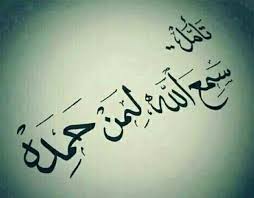 تأمل..
سمع اللهُ لِمَن حَمِدَه